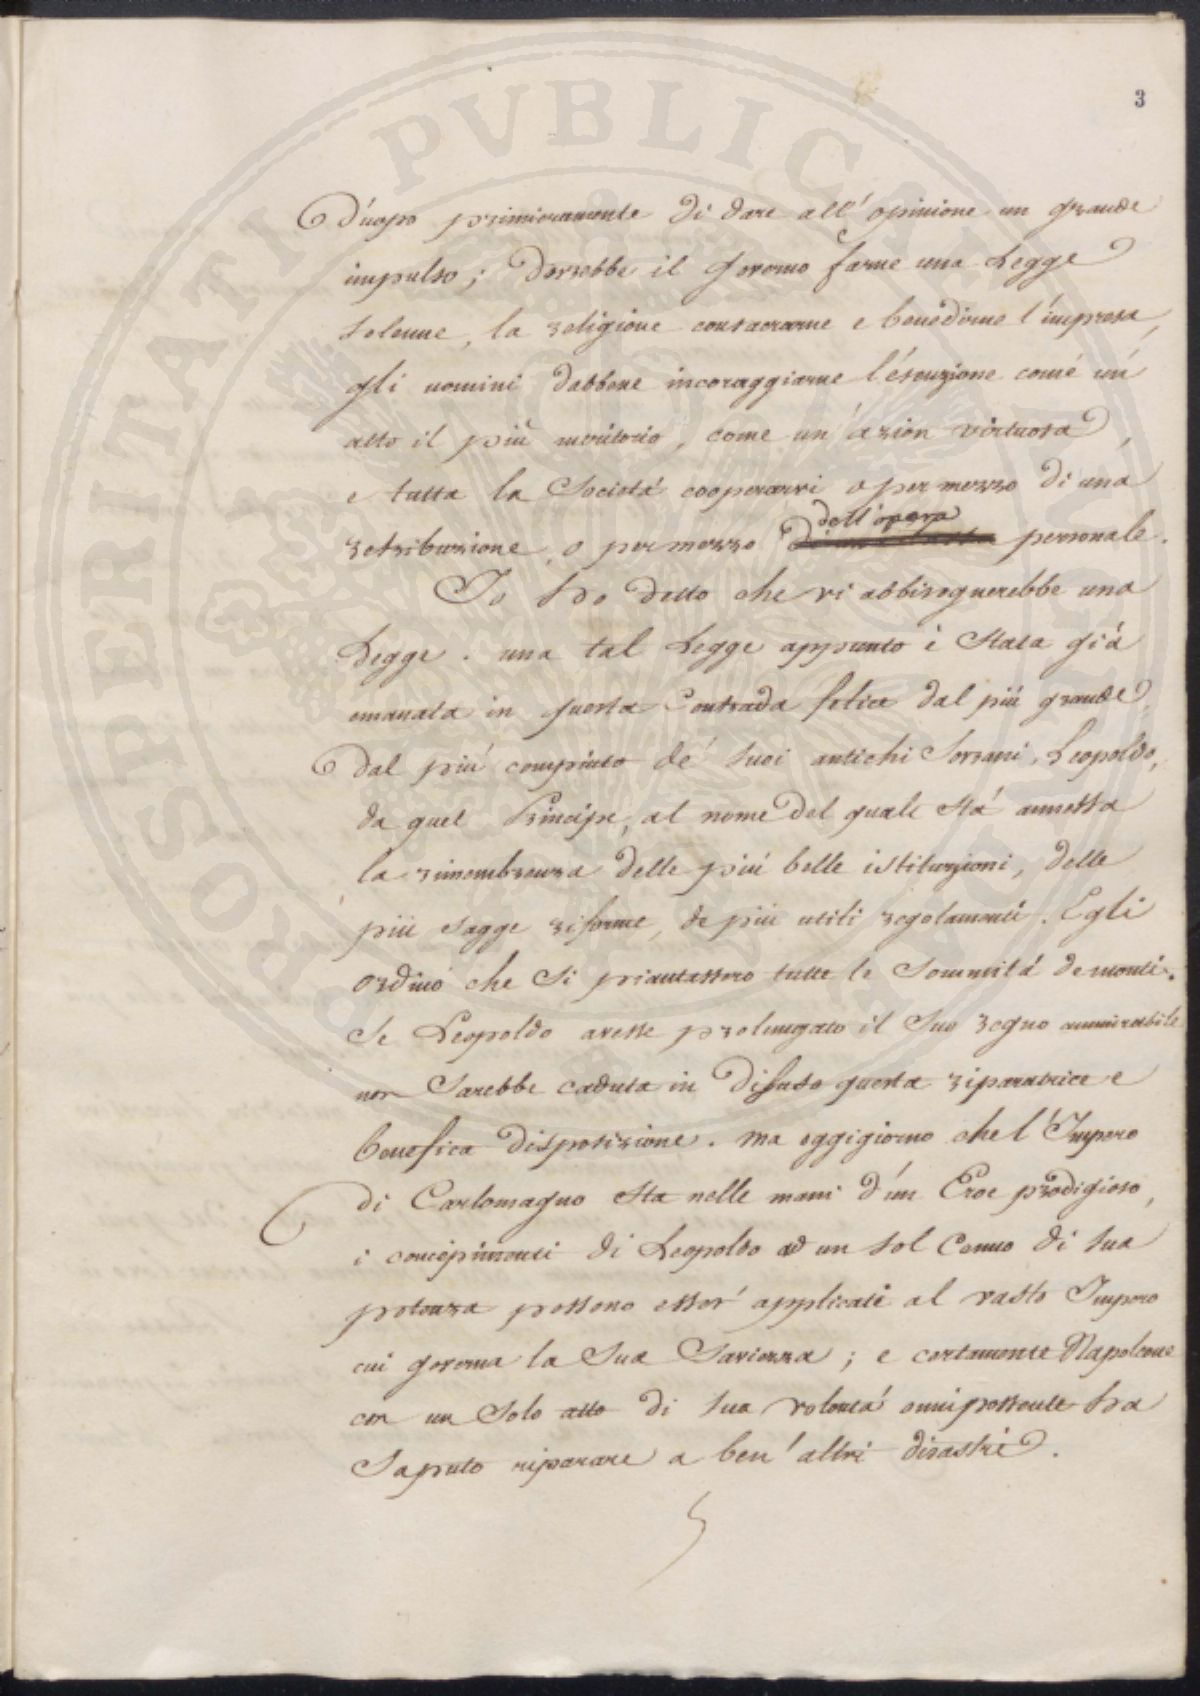 3
D'uopo primieramente di dare all'opinione un grande
impulso; dovrebbe il Governo farne una Legge
Solenne, la religione consacrarne e benedirne l'impresa,
gli uomini dabbene incoraggiarne l'ésecuzione comé un'
atto il più meritorio, come un'azión virtuosa,
e tutta la Societá cooperarvi o per mezzo di una
retribuzione, o per mezzo dell'opera personale.
Io ho detto che vi abbisognerebbe una
Legge. una tal Legge appunto è Stata giá
emanata in questa Contrada felice dal più grande,
dal piú compiuto de' suoi antichi Sovrani, Leopoldo,
da quel Principe, al nome del quale Stá annessa
la rimembranza delle piú belle istituzioni, delle
più sagge riforme, de più utili regolamenti. Egli
ordinó che Si piantassero tutte le Sommitá de monti.
Se Leopoldo avesse prolungato il Suo regno ammirabile
non Sarebbe caduta in disuso questa riparatrice e
benefica disposizione. ma oggigiorno che l'Impero
di Carlomagno Sta nelle mani d'un Eroe prodigioso,
i concepimenti di Leopoldo ad un sol Cenno di sua
potenza possono esser' applicati al vasto Impero
cui governa la Sua Saviezza; e certamente Napoleone
con un Solo atto di sua volontá onnipossente ha
Saputo riparare a ben' altri disastri.
PROSPERITATI PVBLICAE AVGENDAE